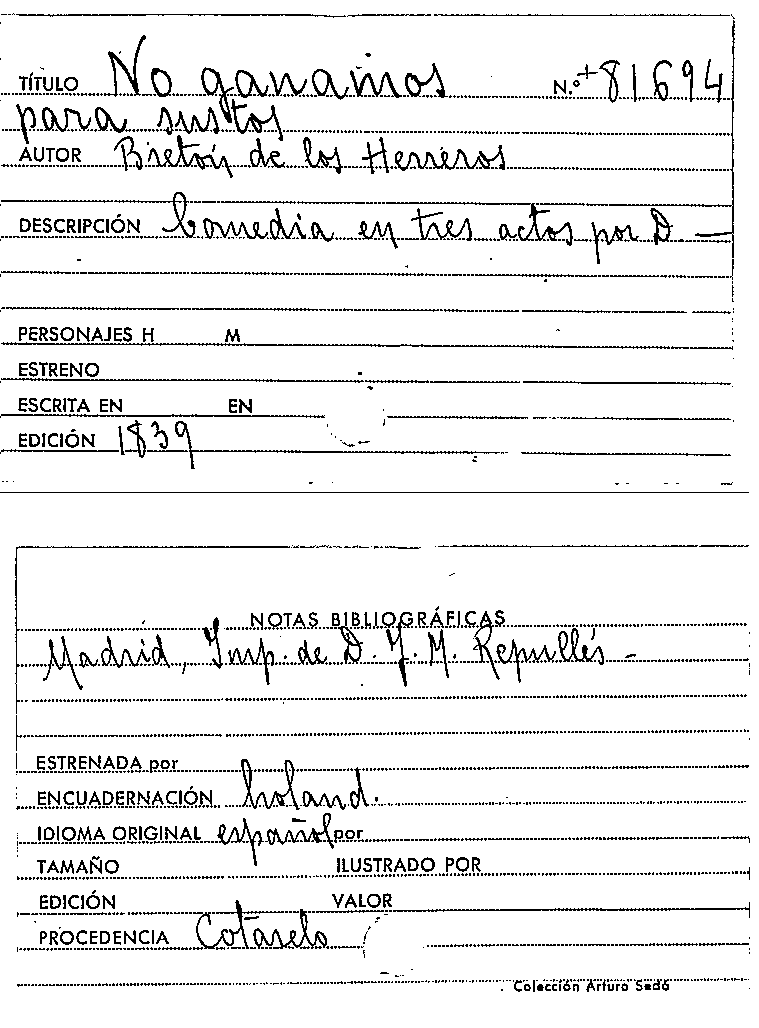 TÍTULO No ganamos N.º +81694
para sustos
AUTOR Bretón de los Herreros
DESCRIPCIÓN Comedia en tres actos por D. —
PERSONAJES H M
ESTRENO
ESCRITA EN EN
EDICIÓN 1839
NOTAS BIBLIOGRÁFICAS
Madrid, Imp. de D. J. M. Repullés -
ESTRENADA por
ENCUADERNACIÓN holand.
IDIOMA ORIGINAL español por
TAMAÑO ILUSTRADO POR
EDICIÓN VALOR
PROCEDENCIA Cotarelo
Colección Arturo Sedó